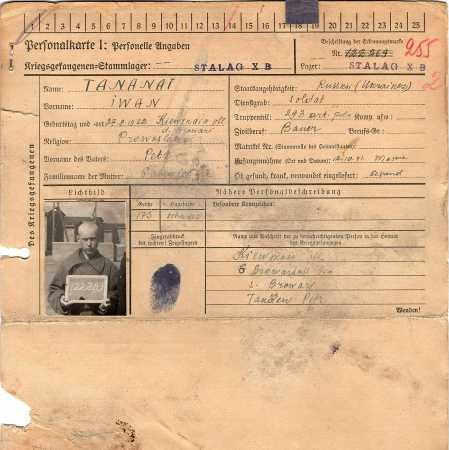 1 2 3 4 5 6 7 8 9 10 11 12 13 14 15 16 17 18 19 20 21 22 23 24 25
Personalkarte I: Personelle Angaben
Beschriftung der Erkennungsmarke
Nr. 122269 255
Kriegsgefangenen-Stammlager: STALAG X B
Lager: STALAG X B
2
Des Kriegsgefangenen
Name: TANANAI
Vorname: IWAN
Geburtstag und -ort
d. Browari
Religion:
Vorname des Vaters: Petr
Familienname der Mutter:
Staatsangehörigkeit: (Ukrainer)
Dienstgrad: Soldat
Truppenteil: 293 art. Komp. usw.:
Zivilberuf: Bauer Berufs-Gr.:
Matrikel Nr. (Stammrolle des Heimatstaates):
Gefangennahme (Ort und Datum): 12.10.41.
Ob gesund, krank, verwundet eingeliefert:
Lichtbild
122269
Nähere Personalbeschreibung
Größe
Haarfarbe
Besondere Kennzeichen:
173
schwarz
Fingerabdruck
des rechten! Zeigefingers
Name und Anschrift der zu benachrichtigenden Person in der Heimat
des Kriegsgefangenen
s. Browari
Petr
Wenden!